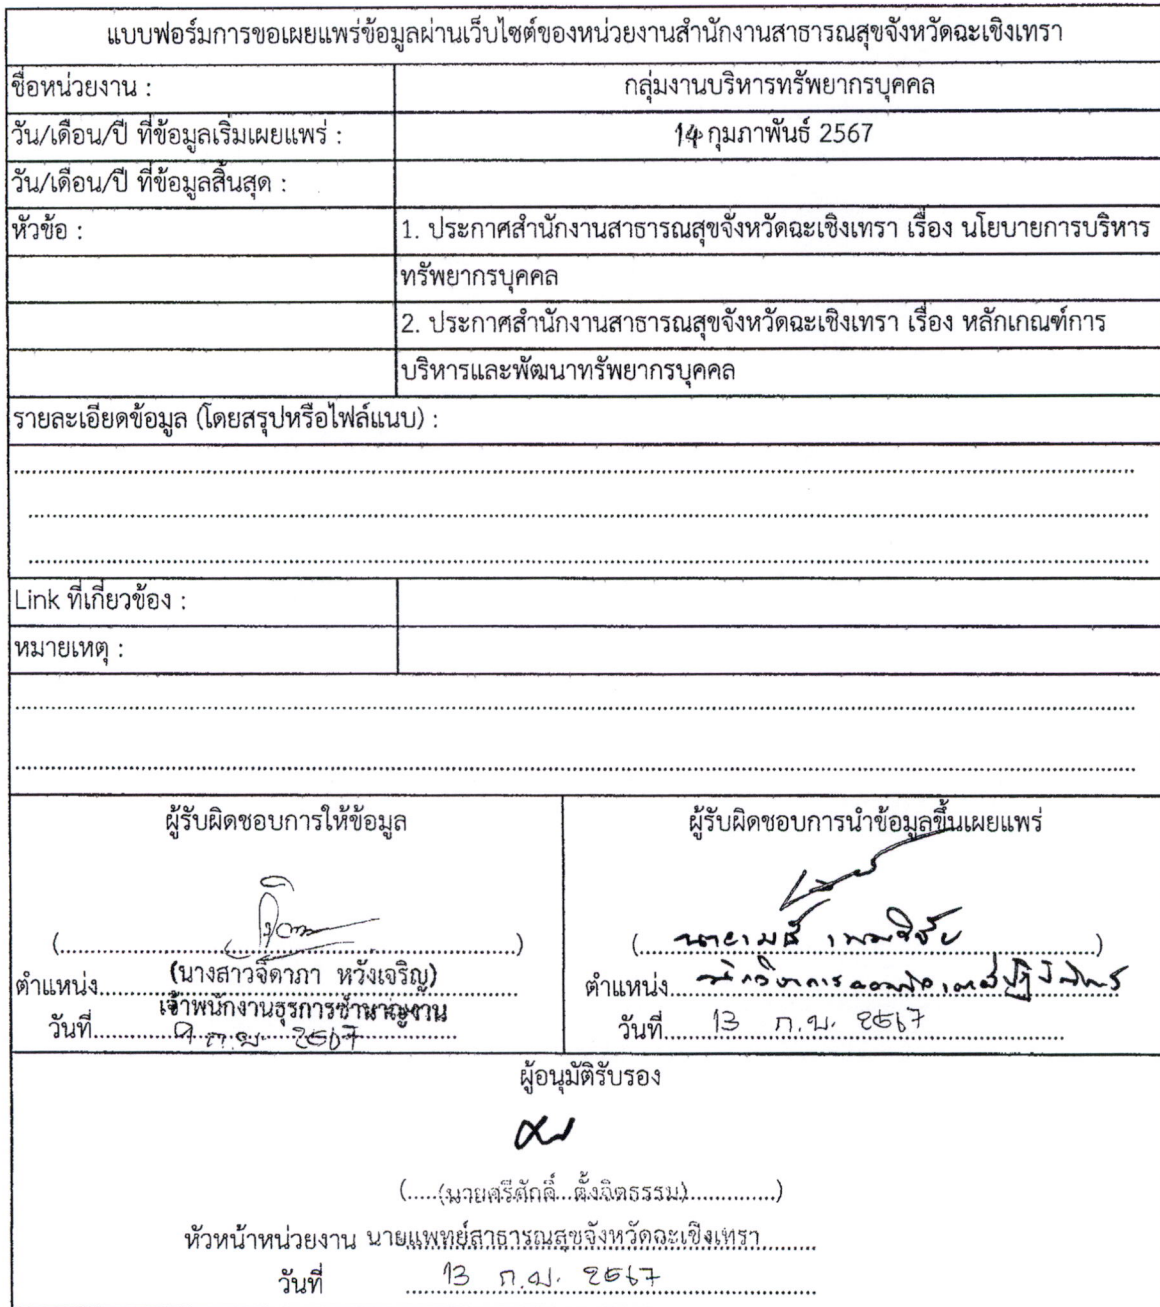 แบบฟอร์มการขอเผยแพร่ข้อมูลผ่านเว็บไซต์ของหน่วยงานสำนักงานสาธารณสุขจังหวัดฉะเชิงเทรา
ชื่อหน่วยงาน : กลุ่มงานบริหารทรัพยากรบุคคล
วัน/เดือน/ปี ที่ข้อมูลเริ่มเผยแพร่ : 14 กุมภาพันธ์ 2567
วัน/เดือน/ปี ที่ข้อมูลสิ้นสุด :
หัวข้อ : 1. ประกาศสำนักงานสาธารณสุขจังหวัดฉะเชิงเทรา เรื่อง นโยบายการบริหาร
ทรัพยากรบุคคล
2. ประกาศสำนักงานสาธารณสุขจังหวัดฉะเชิงเทรา เรื่อง หลักเกณฑ์การ
บริหารและพัฒนาทรัพยากรบุคคล
รายละเอียดข้อมูล (โดยสรุปหรือไฟล์แนบ) :
Link ที่เกี่ยวข้อง :
หมายเหตุ :
ผู้รับผิดชอบการให้ข้อมูล
(นางสาวจิดาภา หวังเจริญ)
ตำแหน่ง
เจ้าพนักงานธุรการชำนาญงาน
วันที่ ก.พ. 2567
ผู้รับผิดชอบการนำข้อมูลขึ้นเผยแพร่
ตำแหน่ง
วันที่ 13 ก.พ. 2567
ผู้อนุมัติรับรอง
(นายศรีศักดิ์ ตั้งจิตธรรม)
หัวหน้าหน่วยงาน นายแพทย์สาธารณสุขจังหวัดฉะเชิงเทรา
วันที่ 13 ก.พ. 2567